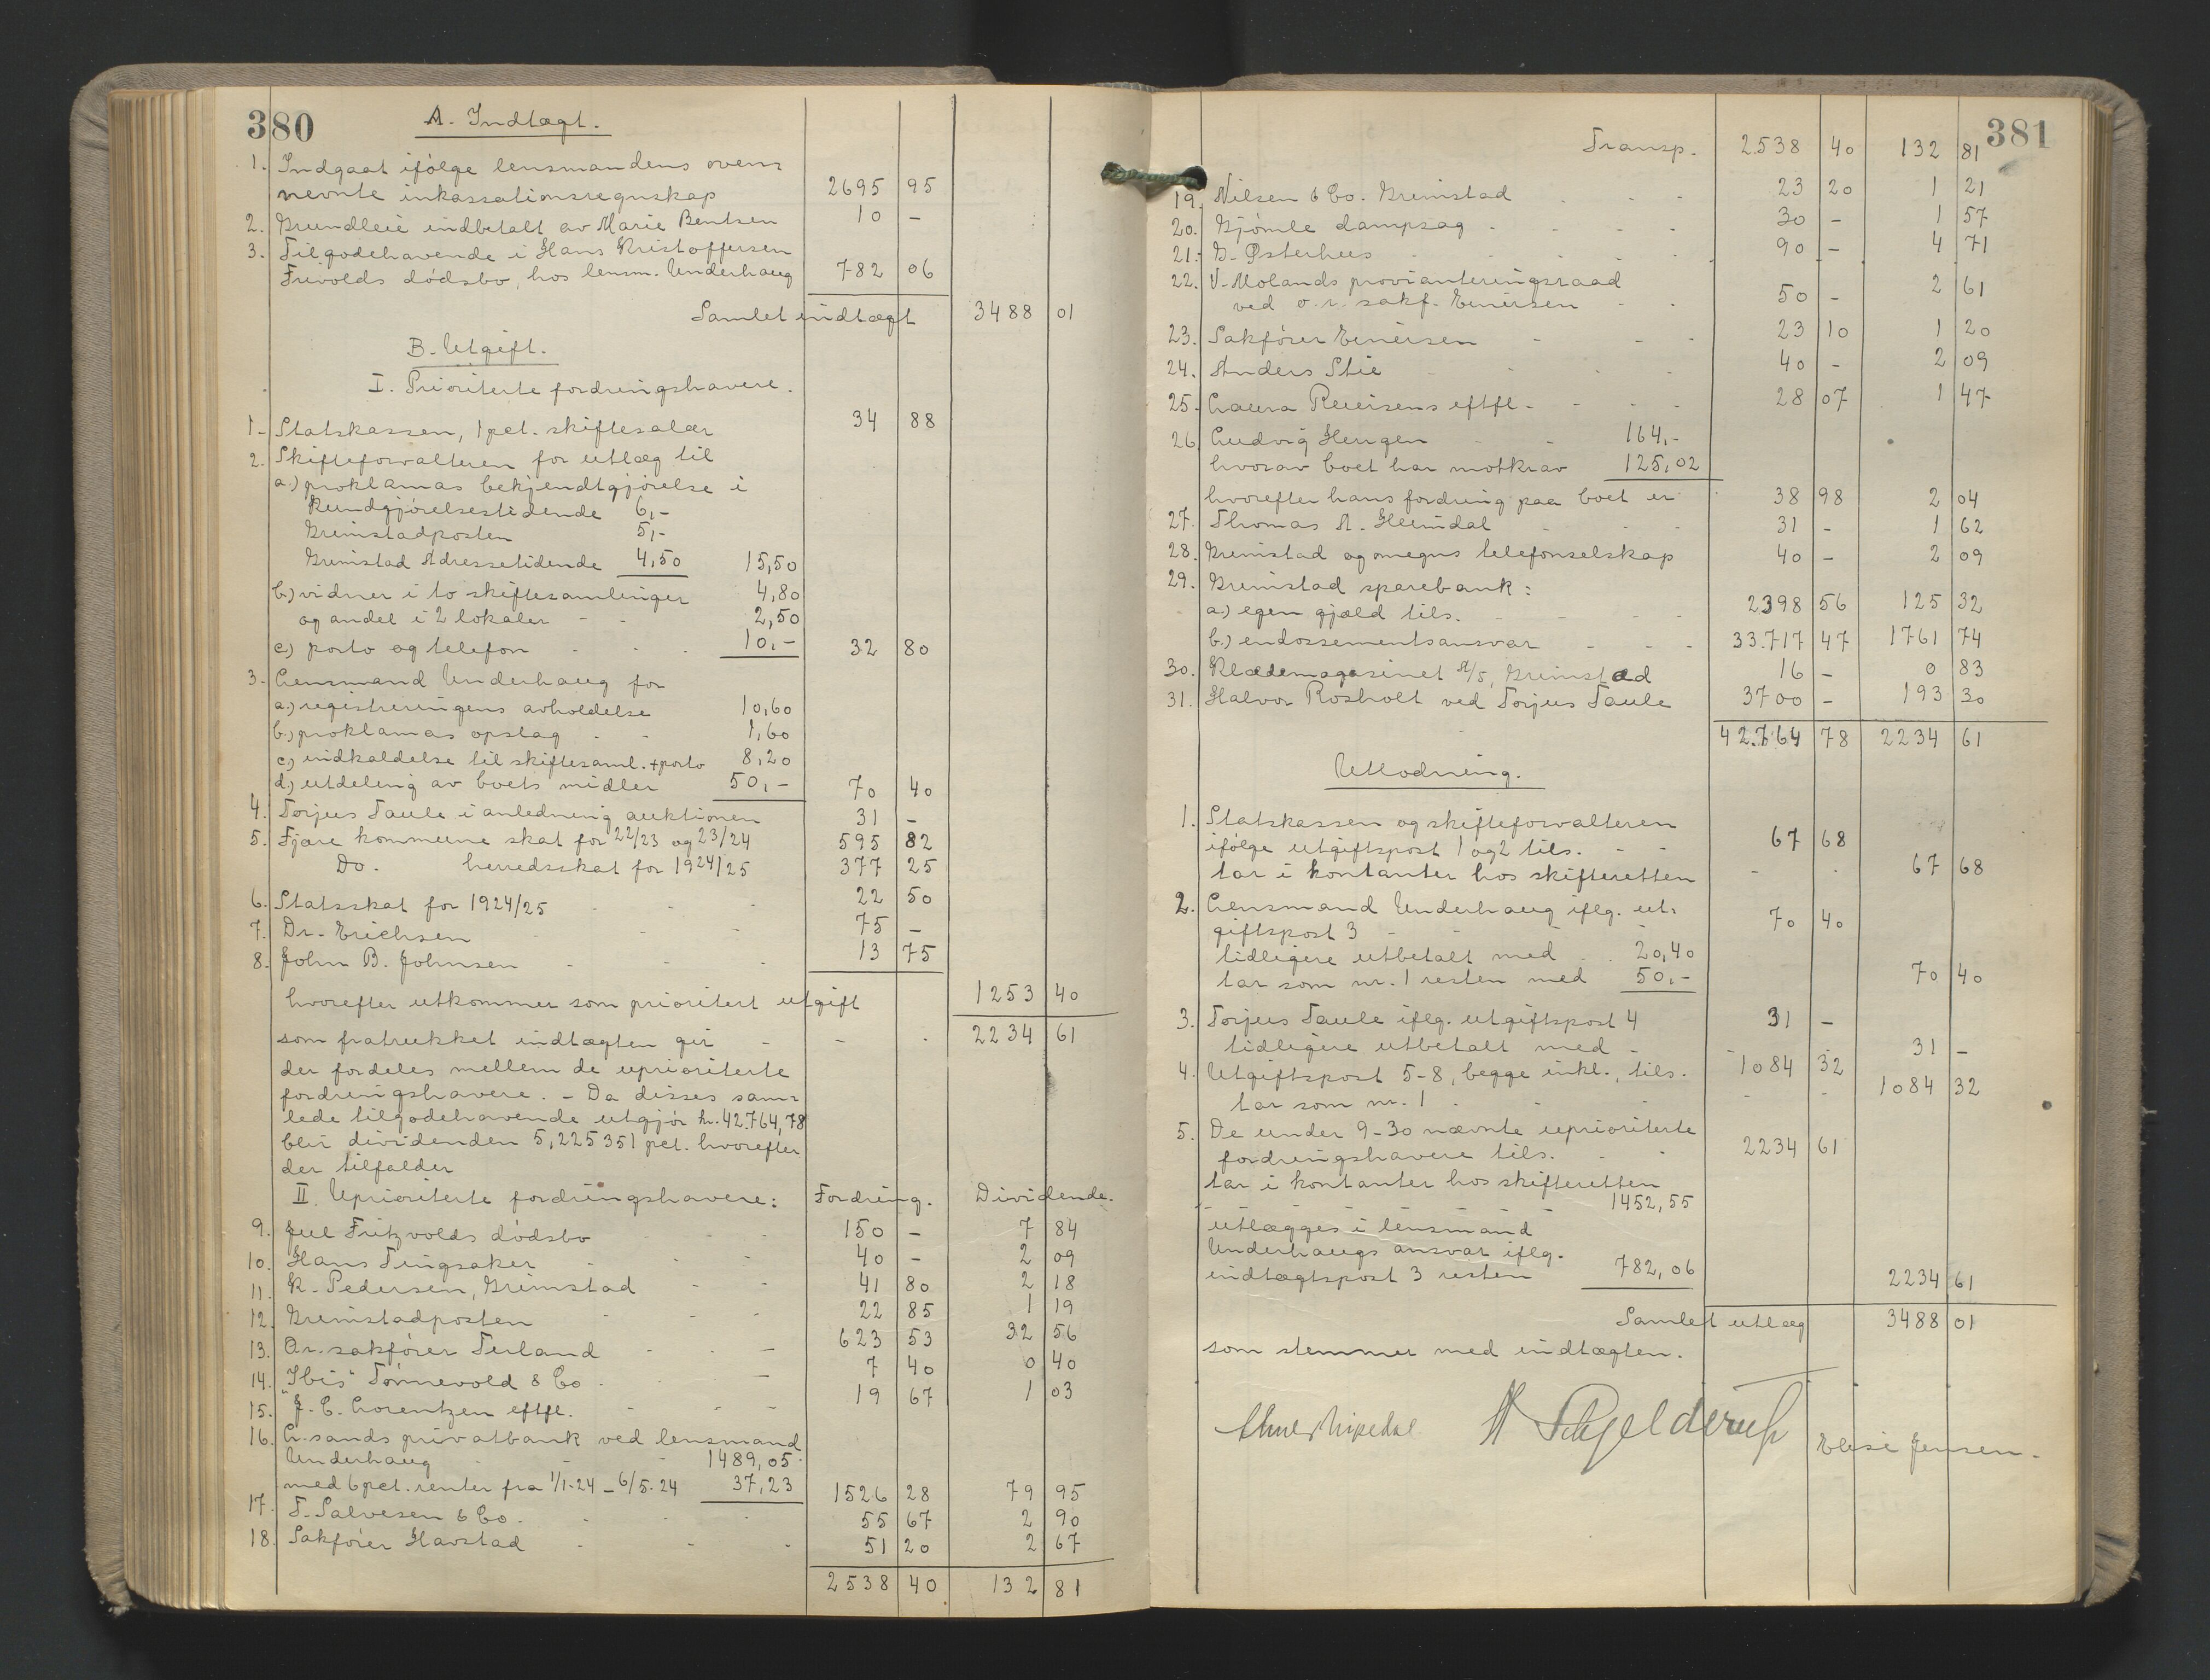 380
A. Indtægt.
1. Indgaat ifólge lensmandens oven=
nevnte inkassationsregnskap 2695 95
2. Grundleie indbetalt av Marie Bentsen 10 -
3. Tilgodehavende i Hans Kristoffersen
Frivolds dódsbo, hos lensm. Underhaug 782 06
Samlet indtægt 3488 01
B. Utgift.
I. Prioriterte fordringshavere.
1. Statskassen, 1 pct. skiftesalær 34 88
2. Skifteforvalteren for utlæg til
a.) proklamas bekjendtgjórelse i
Kundgjórelsestidende 6,-
Grimstadposten 5,-
Grimstad Adressetidende 4,50 15,50
b.) vidner i to skiftesamlinger 4,80
og andel i 2 lokaler - - 2,50
c.) porto og telefon - - - 10,- 32 80
3. Lensmand Underhaug for
a.) registreringens avholdelse 10,60
b.) proklamas opslag - - 1,60
c.) indkaldelse til skiftesaml. + porto 8,20
d.) utdeling av boets midler 50,- 70 40
4. Torjus Taule i anledning auktionen 31 -
5. Fjære kommune skat for 22/23 og 23/24 595 82
Do. herredsskat for 1924/25 377 25
6. Statsskat for 1924/25 - - - 22 50
7. Dr. Erichsen - - - 75 -
8. John B. Johnsen - - - 13 75
hvorefter utkommer som prioritert utgift 1253 40
som fratrukket indtægten gir - - - 2234 61
der fordeles mellem de uprioriterte
fordringshavere. - Da disses sam=
lede tilgodehavende utgjór kr. 42.764,78
blir dividenden 5,225351 pct. hvorefter
der tilfalder
II. Uprioriterte fordringshavere: Fordring. Dividende.
9. Juul Fritzvolds dódsbo 150 - 7 84
10. Hans Tingsaker - - - 40 - 2 09
11. K. Pedersen, Grimstad - - 41 80 2 18
12. Grimstadposten - - 22 85 1 19
13. Or. sakfórer Terland - - - 623 53 32 56
14. "Ibis" Tónnevold & Co - - 7 40 0 40
15. J. C. Lorentzen eftfl. - - - 19 67 1 03
16. Kr.sands privatbank ved lensmand
Underhaug - - 1489,05
med 6 pct. renter fra 1/1-24 - 6/5-24 37,23 1526 28 79 95
17. T. Salvesen & Co. - - 55 67 2 90
18. Sakfórer Havstad - - - 51 20 2 67
2538 40 132 81
381
Transp. 2538 40 132 81
19. Nilsen & Co. Grimstad - - - 23 20 1 21
20. Gjómle dampsag - - - - 30 - 1 57
21. G. Østerhus - - - - 90 - 4 71
22. V. Molands provianteringsraad
ved o. r. sakf. Einersen - - 50 - 2 61
23. Sakfórer Einersen - - - 23 10 1 20
24. Anders Stie - - - - 40 - 2 09
25. Laura Reiersens eftfl. - - - - 28 07 1 47
26. Ludvig Hengen - - 164,-
hvorav boet har motkrav 125,02
hvorefter hans fordring paa boet er 38 98 2 04
27. Thomas A. Heimdal - - - 31 - 1 62
28. Grimstad og omegns telefonselskap 40 - 2 09
29. Grimstad sparebank:
a.) egen gjæld tils. - - - - 2398 56 125 32
b.) endossementsansvar - - - 33.717 47 1761 74
30. Klædemagasinet A/S, Grimstad 16 - 0 83
31. Halvor Rosholt ved Torjus Taule 3700 - 193 30
42.764 78 2234 61
Utlodning.
1. Statskassen og skifteforvalteren
ifólge utgiftspost 1 og 2 tils. - - 67 68
tar i kontanter hos skifteretten - - 67 68
2. Lensmand Underhaug iflg. ut=
giftspost 3 - - - - 70 40
tidligere utbetalt med - - 20,40
tar som nr. 1 resten med 50,- 70 40
3. Torjus Taule iflg. utgiftspost 4 31 -
tidligere utbetalt med - - - 31 -
4. Utgiftspost 5-8, begge inkl., tils. 1084 32
tar som nr. 1 - - - - - 1084 32
5. De under 9-30 nævnte uprioriterte
fordringshavere tils. - - 2234 61
tar i kontanter hos skifteretten
- - - - - 1452,55
utlægges i lensmand
Underhaugs ansvar iflg.
indtægtspost 3 resten 782,06 2234 61
Samlet utlæg 3488 01
som stemmer med indtægten.
Elise Jensen.